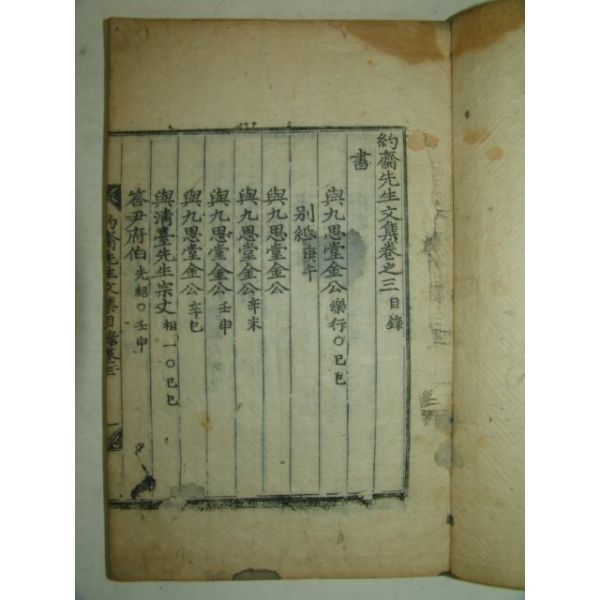 約齋先生文集卷之三目錄
書
與九思堂金公樂行○己巳
別紙庚午
與九思堂金公
與九思堂金公辛未
與九思堂金公壬申
與九思堂金公辛巳
與清臺先生宗丈相一○己巳
答尹府伯光紹○壬申
約齋先生文集目錄卷之三